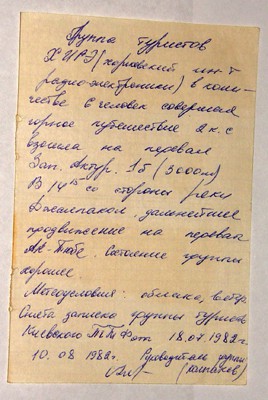 Группа туристов
ХИРЭ (харьковский ин-т
радио-электроники) в коли-
честве 6 человек совершая
горное путешествие 2 к. с
взошла на перевал
Зап. Актур. 1б (3000м)
В 14 15 со стороны реки
Джалпакол. дальнейшее
продвижение на перевал
Ак-Тюбе. Состояние группы
хорошее.
Метеоусловия: облака, ветер
Снята записка группы туристов
Киевского от 18.07.1982г.
10.08 1982г. Руководитель группы